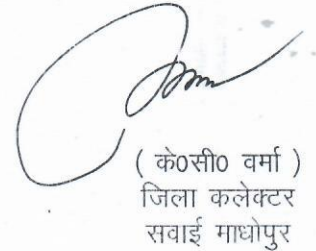 ( के0सी0 वर्मा )
जिला कलेक्टर
सवाई माधोपुर